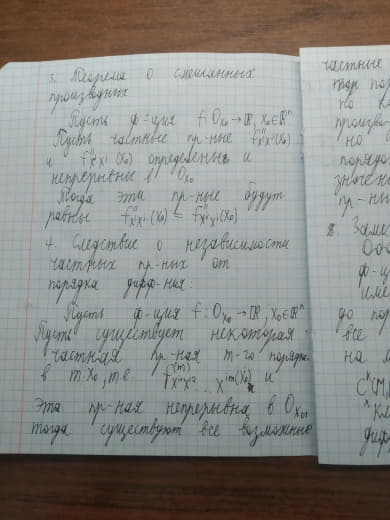 3. Теорема о смешанных
производных
Пусть ф-ция f: O_{x_0} → ℝ, x_0 ∈ ℝⁿ
Пусть частные пр-ные f''_{x^i x^j}(x_0)
и f''_{x^j x^i}(x_0) определены и
непрерывны в O_{x_0}
Тогда эти пр-ные будут
равны f''_{x^i x^j}(x_0) = f''_{x^j x^i}(x_0)
4. Следствие о независимости
частных пр-ных от
порядка дифф-ния:
Пусть ф-ция f: O_{x_0} → ℝ, x_0 ∈ ℝⁿ
Пусть существует некоторая
частная пр-ная m-го порядка
в т. x_0, т.е. f^{(m)}_{x^{i1} x^{i2} ... x^{im}}(x_0) и
эта пр-ная непрерывна в O_{x_0},
тогда существуют все возможные
частные
по
но
порядка
пр-ны
8. Заме
ф-ци
име
до пор
все
на м
диф